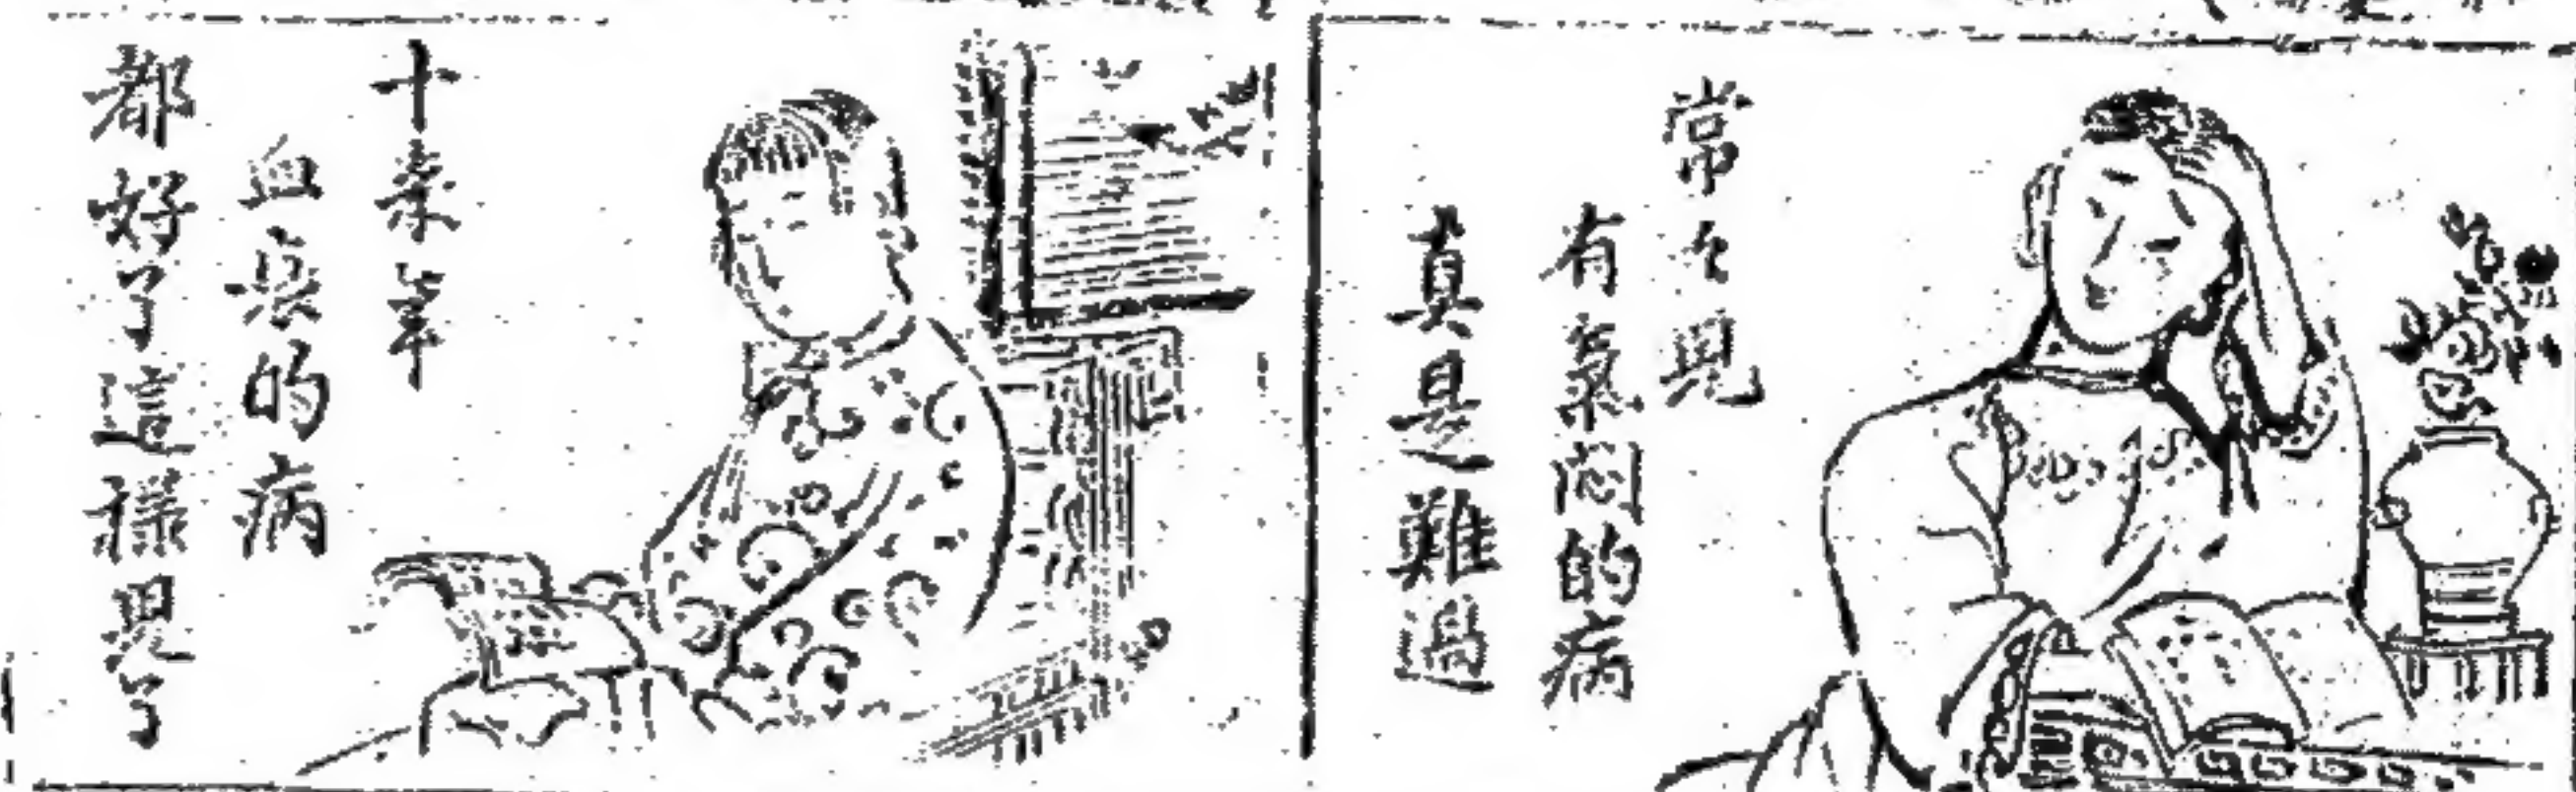 常々兒
有氣悶的病
真是難過
十來年
血的病
都好了這樣兒了